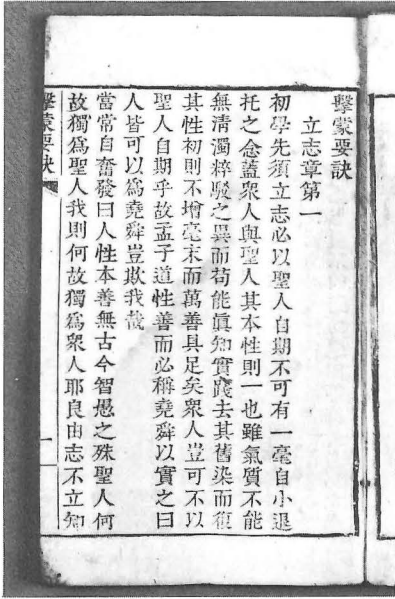 擊蒙要訣
立志章第一
初學先須立志必以聖人自期不可有一毫自小退
托之念蓋衆人與聖人其本性則一也雖氣質不能
無淸濁粹駁之異而苟能眞知實踐去其舊染而復
其性初則不增毫末而萬善具足矣衆人豈可不以
聖人自期乎故孟子道性善而必稱堯舜以實之曰
人皆可以爲堯舜豈欺我哉
當常自奮發曰人性本善無古今智愚之殊聖人何
故獨爲聖人我則何故獨爲衆人耶良由志不立知
擊蒙要訣
一